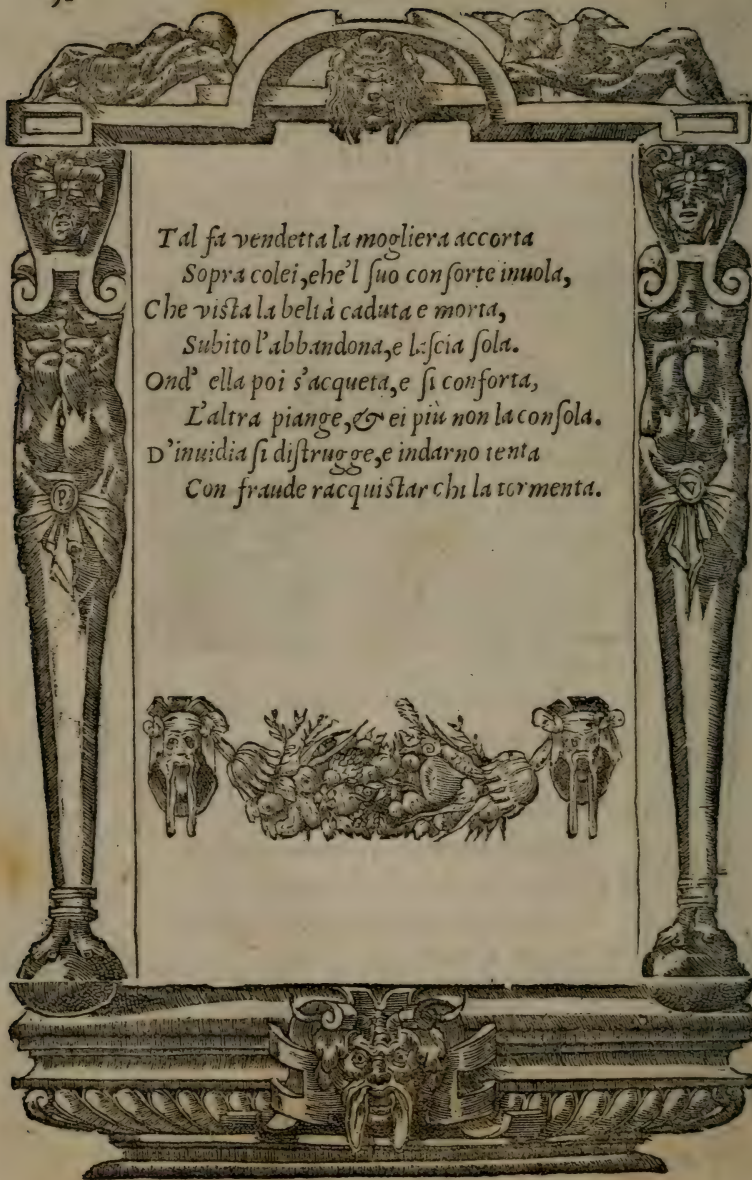 Tal fa vendetta la mogliera accorta
Sopra colei, ehe'l ſuo conſorte inuola,
Che viſta la beltà caduta e morta,
Subito l'abbandona, e laſcia ſola.
Ond' ella poi s'acqueta, e ſi conforta,
L'altra piange, & ei più non la conſola.
D'inuidia ſi diſtrugge, e indarno tenta
Con fraude racquiſtar chi la tormenta.
P
V